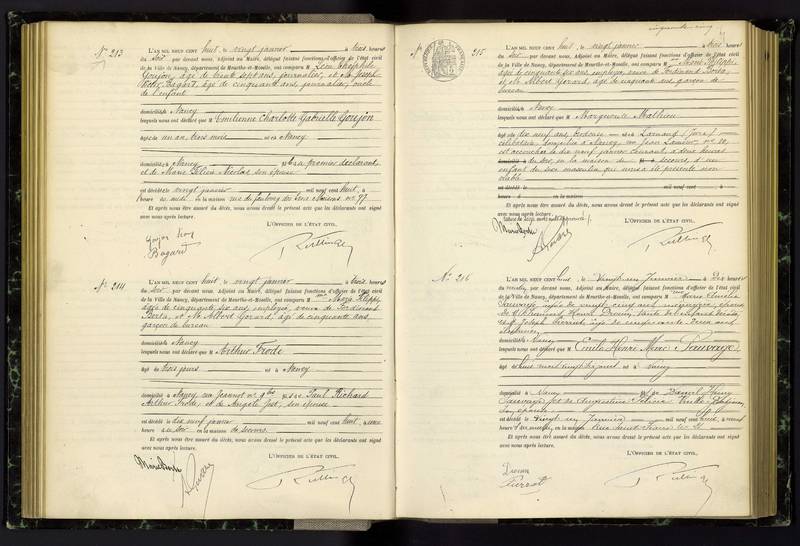 cinquante cinq
N° 213
L'AN MIL NEUF CENT huit, le vingt janvier à trois heures
du soir, par devant nous, Adjoint au Maire, délégué faisant fonctions d'officier de l'état civil
de la Ville de Nancy, département de Meurthe-et-Moselle, ont comparu M Léon Théophile
Goujon, âgé de trente sept ans, journalier, et M. Joseph
Bagard, âgé de cinquante ans, journalier, oncle
de l'enfant
domiciliés à Nancy
lesquels nous ont déclaré que M Emilienne Charlotte Gabrielle Goujon
âgée de un an, trois mois née à Nancy
domiciliée à Nancy, fille du premier déclarant,
et de Marie Félicie Nicolas, son épouse
est décédée le vingt janvier mil neuf cent huit, à
heure du midi, en la maison rue du faubourg des trois Maisons n° 97.
Et après nous être assuré du décès, nous avons dressé le présent acte que les déclarants ont signé
avec nous après lecture.
L'OFFICIER DE L'ÉTAT CIVIL.
Goujon Léon
Bagard
N° 214
L'AN MIL NEUF CENT huit, le vingt janvier à trois heures
du soir, par devant nous, Adjoint au Maire, délégué faisant fonctions d'officier de l'état civil
de la Ville de Nancy, département de Meurthe-et-Moselle, ont comparu Mme Marie
âgée de cinquante six ans, employée, veuve de Ferdinand
et M. Albert Gérard, âgé de cinquante ans,
garçon de bureau
domiciliés à Nancy
lesquels nous ont déclaré que M Arthur Trode
âgé de trois jours né à Nancy
domicilié à Nancy, rue Jeannot n° 9 bis, fils de Paul Richard
Arthur Trode, et de Angèle son épouse
est décédé le dix neuf janvier mil neuf cent huit, à
heure du soir en la maison de secours
Et après nous être assuré du décès, nous avons dressé le présent acte que les déclarants ont signé
avec nous après lecture.
L'OFFICIER DE L'ÉTAT CIVIL.
N° 215
L'AN MIL NEUF CENT huit, le vingt janvier à trois heures
du soir, par devant nous, Adjoint au Maire, délégué faisant fonctions d'officier de l'état civil
de la Ville de Nancy, département de Meurthe-et-Moselle, ont comparu Mme Marie
âgée de cinquante six ans, employée, veuve de Ferdinand
et M. Albert Gérard, âgé de cinquante ans, garçon de
bureau
domiciliés à Nancy
lesquels nous ont déclaré que M Marguerite Mathieu
âgée de dix neuf ans, brodeuse née à Larnaud (Jura)
célibataire, domiciliée à Nancy, rue Jean Lamour, n° 10,
est accouchée le dix neuf janvier courant, à deux heures
du soir, en la maison de secours, d'un
enfant du sexe masculin, qui nous a été présenté sans
vie
est décédé le mil neuf cent à
heure d en la maison
Et après nous être assuré du décès, nous avons dressé le présent acte que les déclarants ont signé
avec nous après lecture.
L'OFFICIER DE L'ÉTAT CIVIL.
N° 216
L'AN MIL NEUF CENT huit, le vingt-un Janvier à Dix heures
du matin, par devant nous, Adjoint au Maire, délégué faisant fonctions d'officier de l'état civil
de la Ville de Nancy, département de Meurthe-et-Moselle, ont comparu Mme Marie Amélie
Sauvage, âgée de vingt cinq ans, ménagère, épouse
Henri tante de l'enfant décédé,
et M. Joseph âgé de cinquante ans
domiciliés à Nancy
lesquels nous ont déclaré que M Emile Henri Marc Sauvage,
âgé de huit mois vingt six jours né à Nancy
domicilié à Nancy fils de Daniel Henry
Sauvage, et de Augustine
son épouse
est décédé le vingt un Janvier mil neuf cent huit, à
heure du matin, en la maison Rue Saint
Et après nous être assuré du décès, nous avons dressé le présent acte que les déclarants ont signé
avec nous après lecture.
L'OFFICIER DE L'ÉTAT CIVIL.